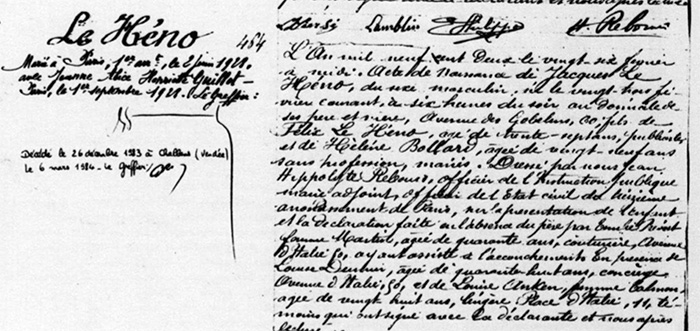 Le Héno
454
Marié à Paris, 1er arrt, le 2 juin 1921,
avec Jeanne Alice Henriette Quillot
Paris, le 1er septembre 1921. Le Greffier:
Décédé le 26 décembre 1983 à Challans (Vendée)
Le 6 mars 1984 - le greffier:
Lamblin Philippe H. Rebour
L'An mil neuf cent deux le vingt six février
à midi. Acte de naissance de Jacques Le
Héno, du sexe masculin, né le vingt fé
vrier courant, à six heures du soir au domicile de
ses père et mère, Avenue des Gobelins, fils de
Félix Le Héno, agé de trente sept ans, publiciste
et de Hélène Bollard, agée de vingt neuf ans
sans profession, mariés. Dressé par nous Jean
Hippolyte Rebour, officier de l'Instruction publique
maire adjoint, officier de l'Etat civil du treizième
arrondissement de Paris, sur la présentation de l'enfant
et la déclaration faite en l'absence du père par Emilie
femme Martial, agée de quarante ans, couturière, Avenue
d'Italie 50, ayant assisté à l'accouchement. En présence de
Louise agée de quarante huit ans, concierge
Avenue d'Italie, 50, et de Louise femme
agée de vingt huit ans, lingère Place d'Italie, 11, té
moins qui ont signé avec la déclarante et nous après
lecture.